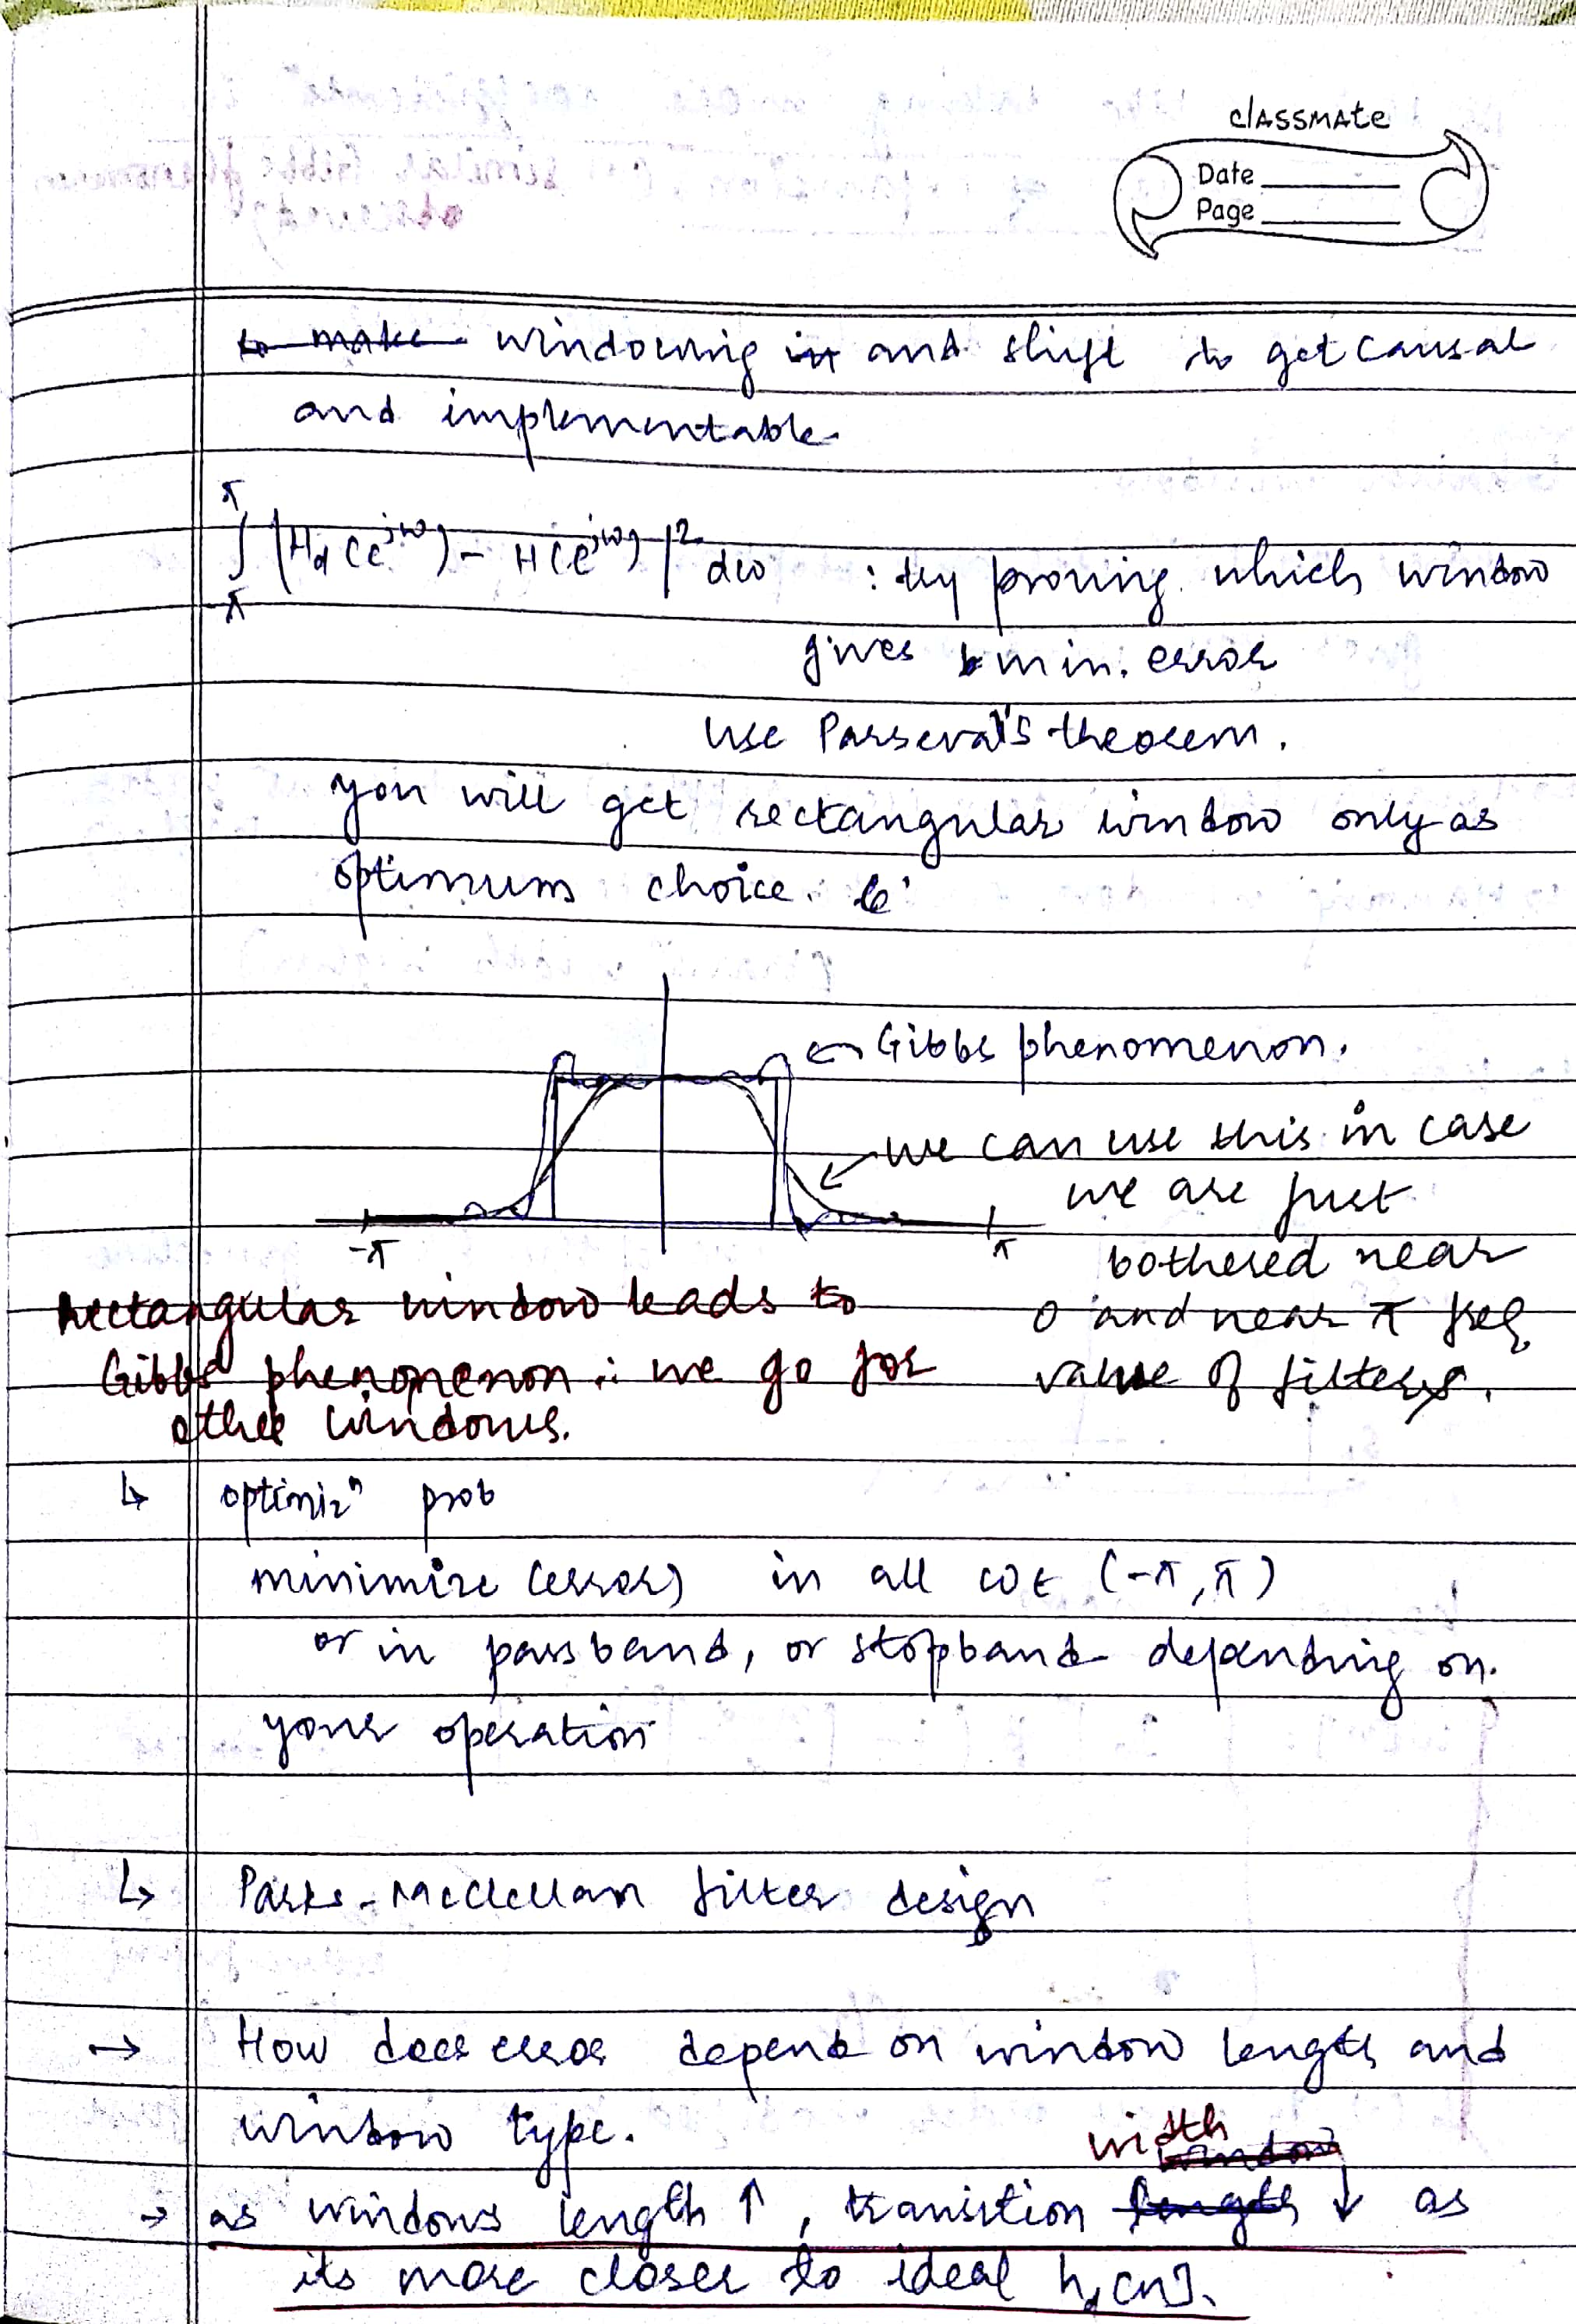 classmate
Date
Page
to make windowing in and shift to get causal
and implementable
∫_{-π}^{π} |H_d(e^{jω}) - H(e^{jω})|² dω : try proving which window
gives min. error
use Parseval's theorem.
you will get rectangular window only as
optimum choice.
← Gibbs phenomenon.
we can use this in case
we are just
bothered near
0 and near π freq
value of filters.
-π
π
Rectangular window leads to
Gibbs phenomenon ∴ we go for
other windows.
↳ optimizⁿ prob
minimize (error) in all ω ∈ (-π, π)
or in passband, or stopband depending on
your operation
↳ Parks-McClellan filter design
→ How does error depend on window length and
window type.
width window
→ as windows length ↑, transition length ↓ as
its more closer to ideal h_d[n].